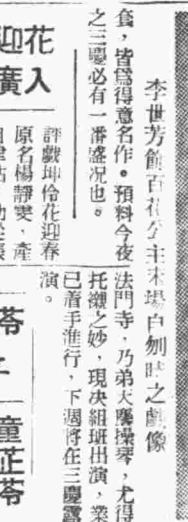 李世芳飾百花公主末場自刎時之戲像
，皆爲得意名作。預料今夜
之三慶必有一番盛况也。
花迎
入廣
評戲坤伶花迎春
原名楊靜雯，產
法門寺，乃弟天操琴，尤得
托襯之妙，現决組班出演，業
已着手進行，下週將在三慶露
演。
童芷苓
苓